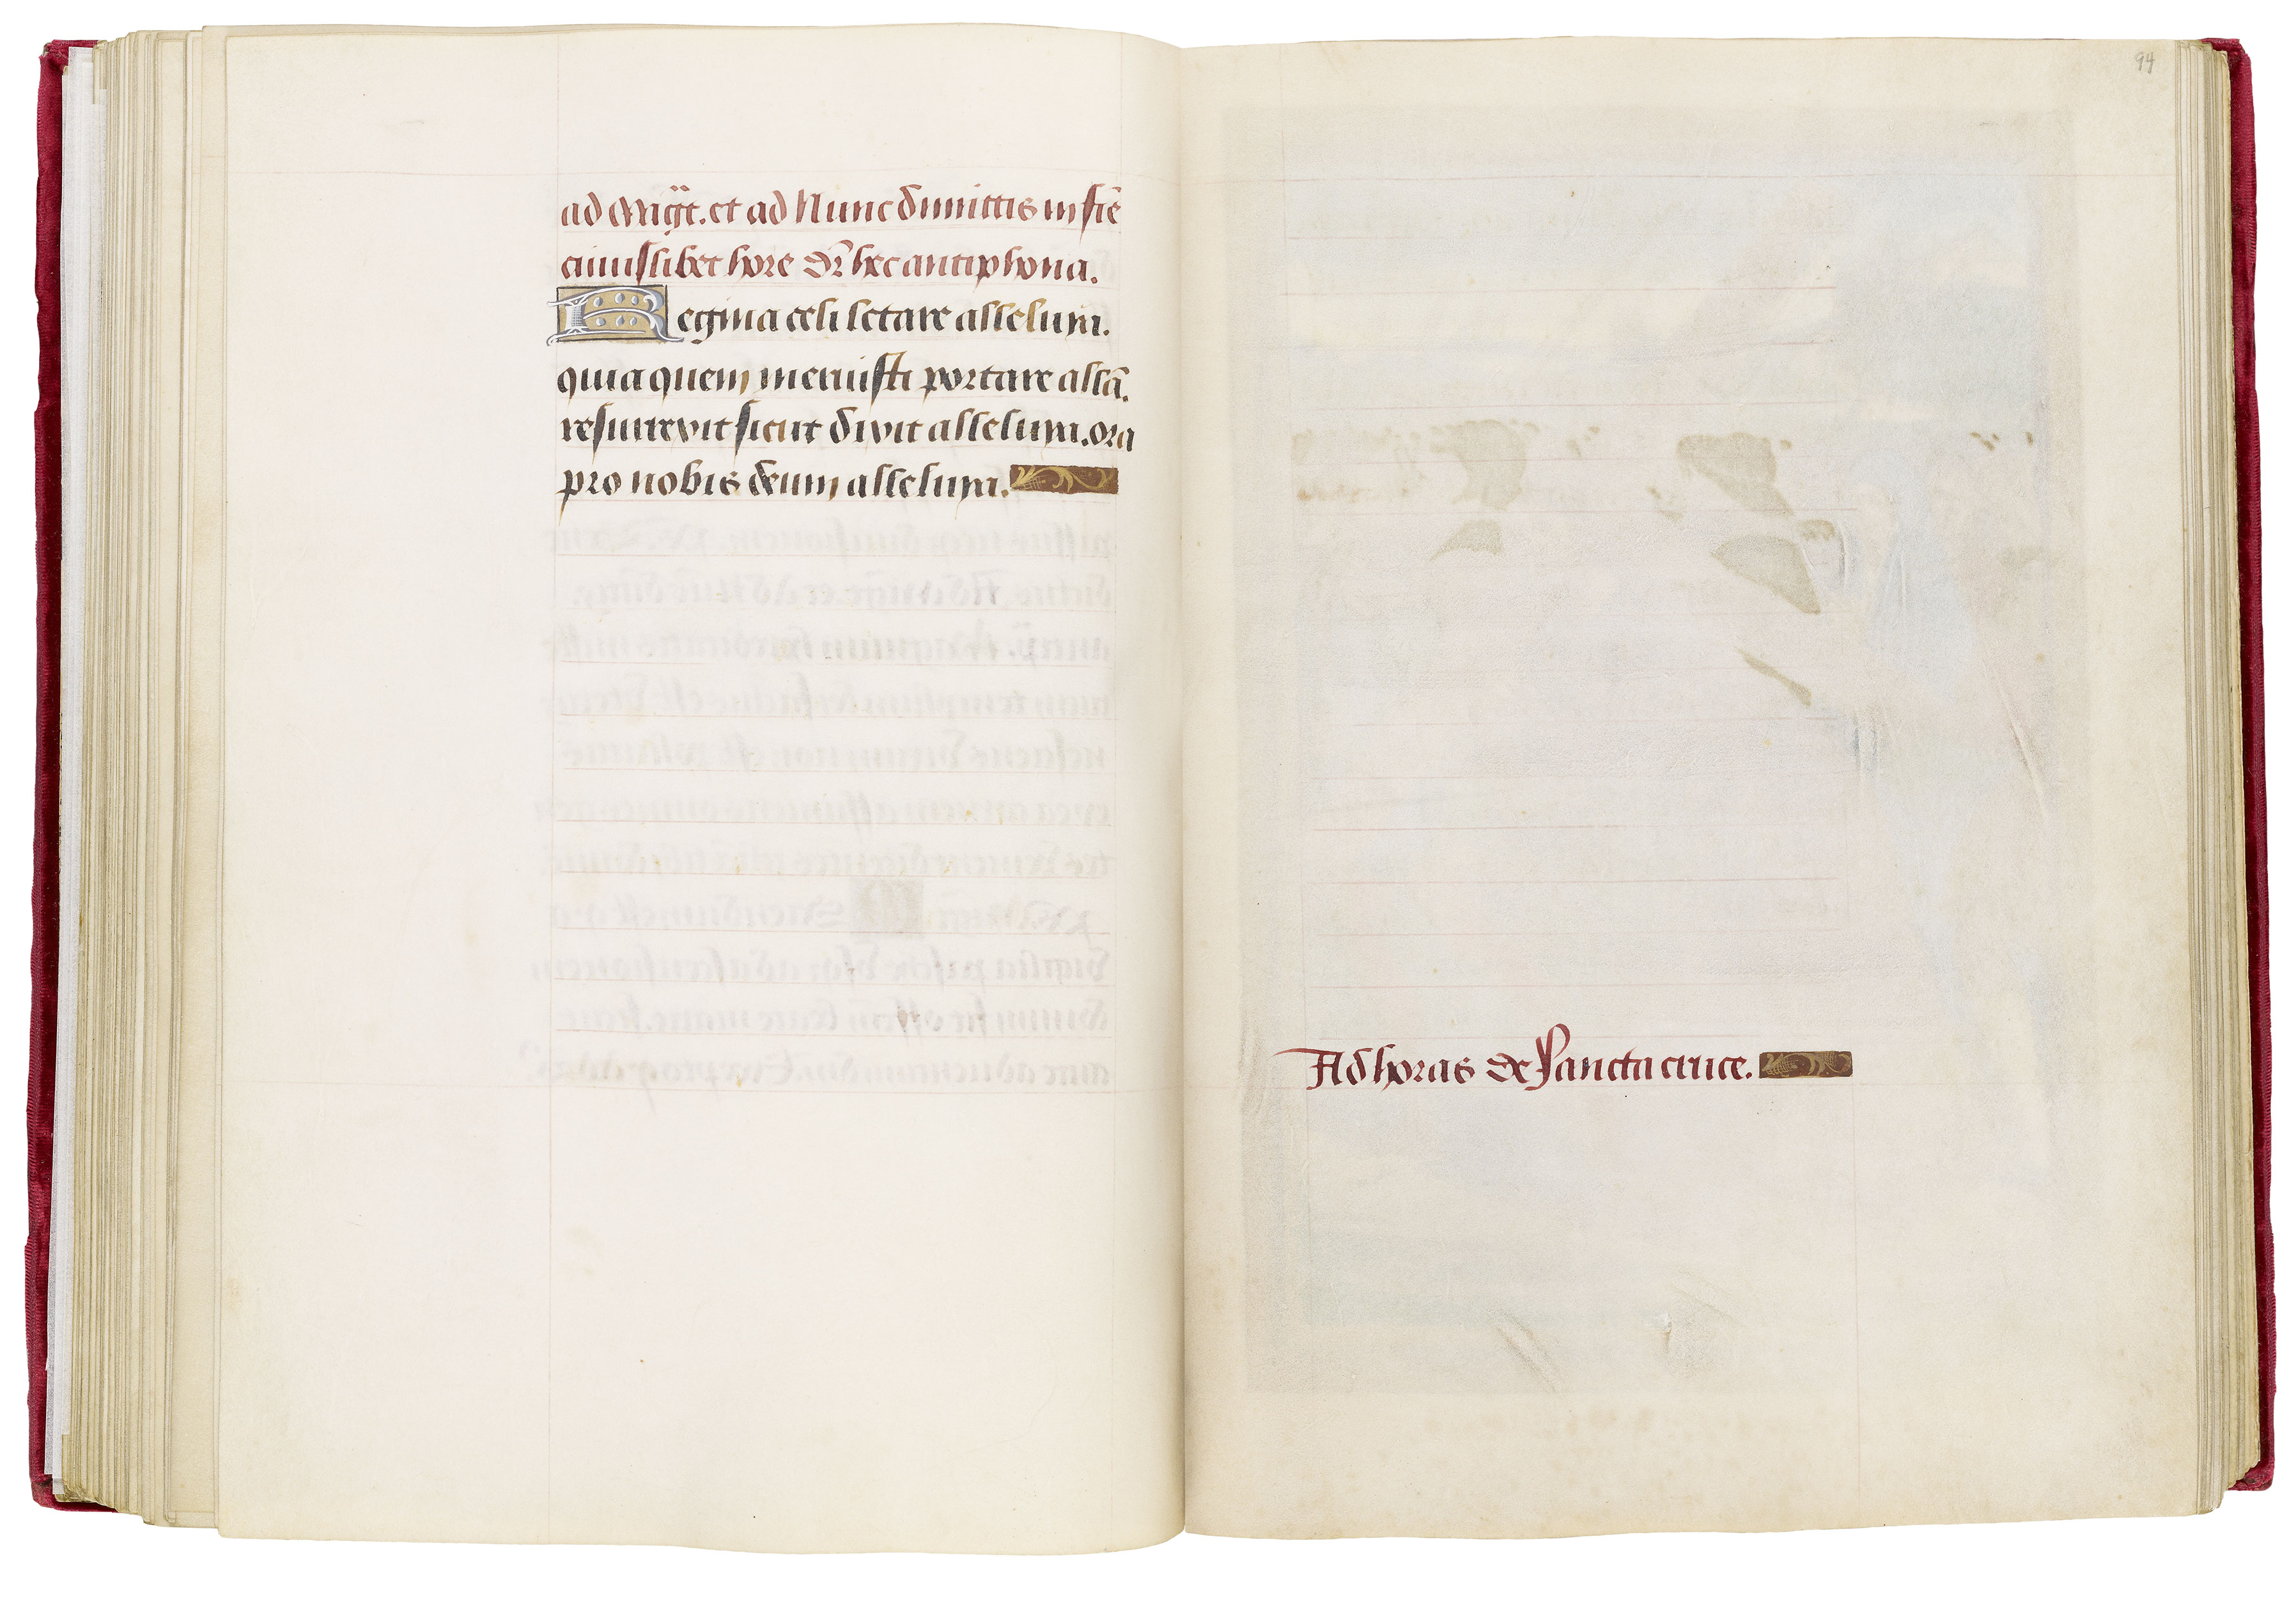 ad Mag̃t. et ad Nunc dimittis in fiẽ
cuiuslibet hore dr̃ hec antiphona.
Regina celi letare alleluya.
quia quem meruisti portare allã.
resurrexit sicut dixit alleluya. ora
pro nobis deum alleluya.
94
Ad horas de sancta cruce.